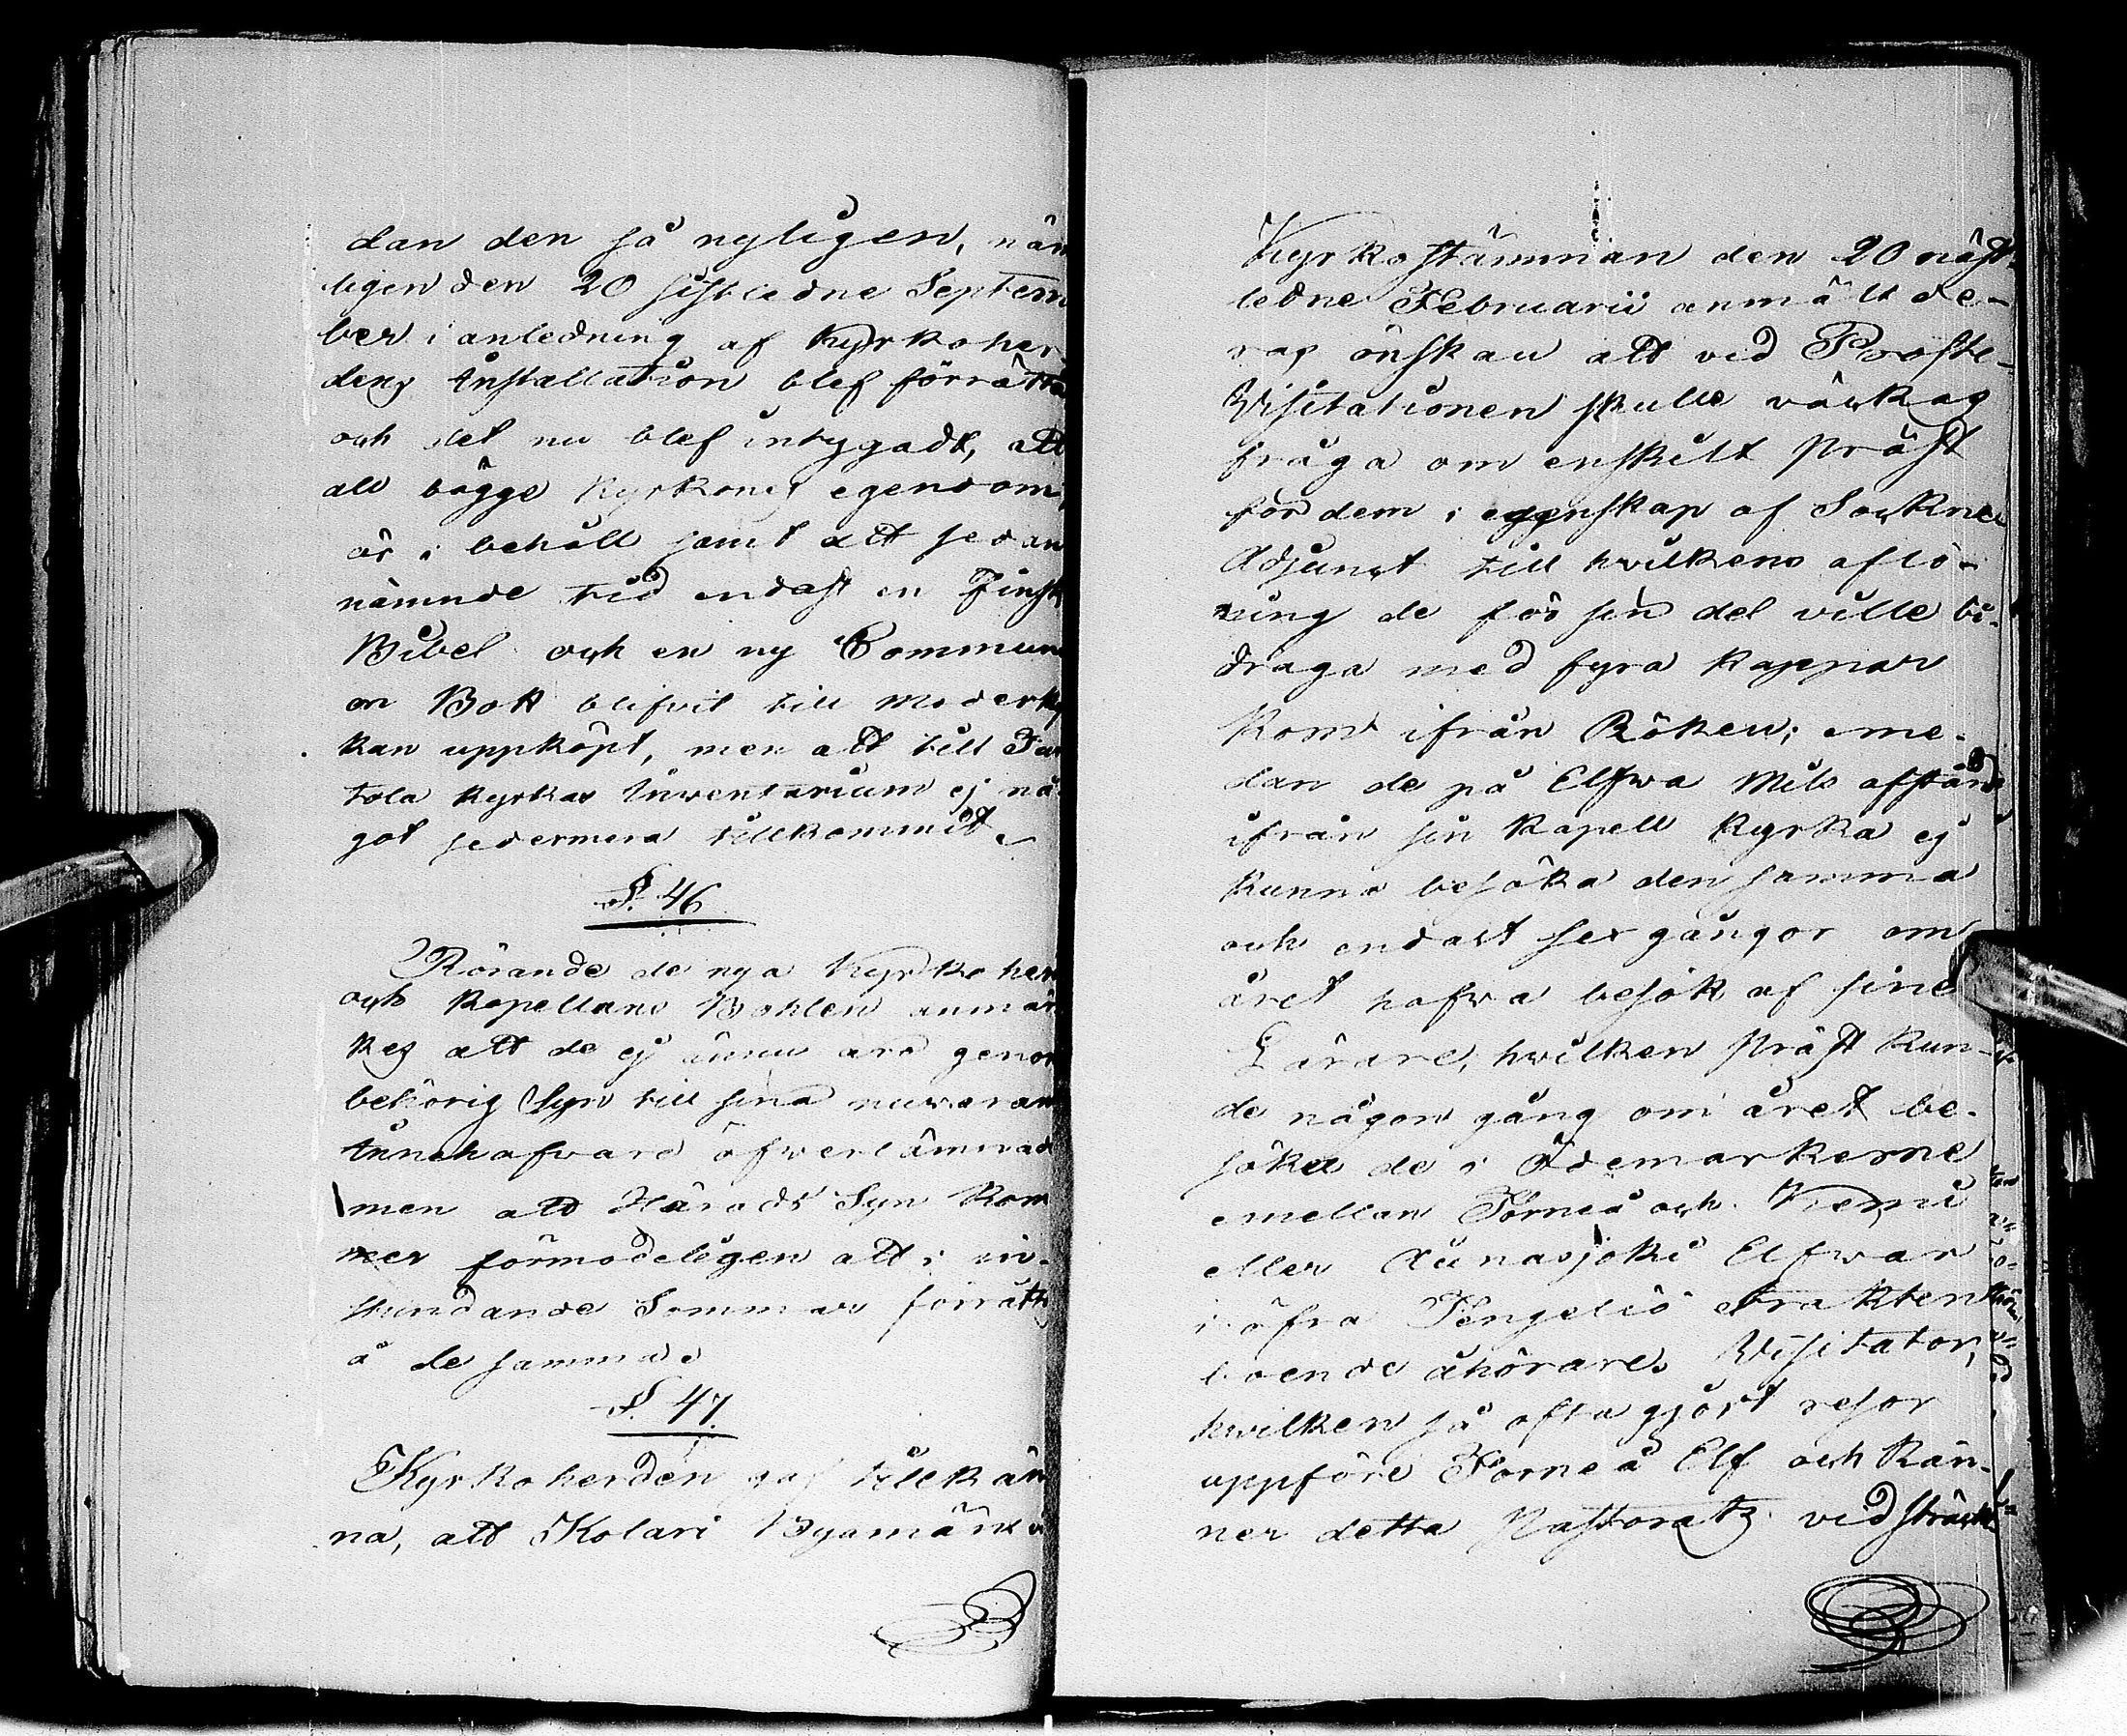 dan den så nyligen, näm
ligen den 20 sistledne Septem
ber i anledning af Kyrkoher
dens Installation blef förrätta
och det nu blef intygadt, att
all bägge Kyrkones egendom
är i behåll samt att sedan
nämnde tid endast en Finsk
Bibel och en ny Commun
on Bok blifvit till Moderky
kan uppköpt, men att till Tur
tola kyrkas Inventarium ej nå
got sedermera tillkommit.
§. 46
Rörande de nya Kyrkoher
och Kapellans Bohlen anmär
kes att de ej ännu äro genom
behörig Syn till sina nuvaran
Innehafvare öfverlämnade
men att Härads Syn kom
mer förmodeligen att i in-
stundande Sommar förrätts
å de samma.
§. 47.
Kyrkoherden gaf tillkän
na, att Kolari Byamän v
Kyrkostämman den 20 näst-
ledne Februarii anmält de-
ras önskan att vid Prosts-
Visitationen skulle väckas
fråga om enskilt präst
för dem i egenskap af Sockne
Adjunct till hvilkens aflö-
ning de för sin del ville bi-
draga med fyra kappar
Korn ifrån Röken; eme-
dan de på Elfva Mils afstånd
ifrån sin Kapell Kyrka ej
kunna besöka den samma
och endast sex gångor om
året hafva besök af sine
Lärare, hvilken präst kun-
de någon gång om året be-
söka de i Ödemarkerne
emellan Torneå och Kemi
eller Aunasjoki Elfvar
i öfra Tengeliö trakten
boende åhörare. Visitator,
hvilken så ofta gjort resor
uppföre Torneå Elf och kän-
ner detta Pastorats vidsträckt